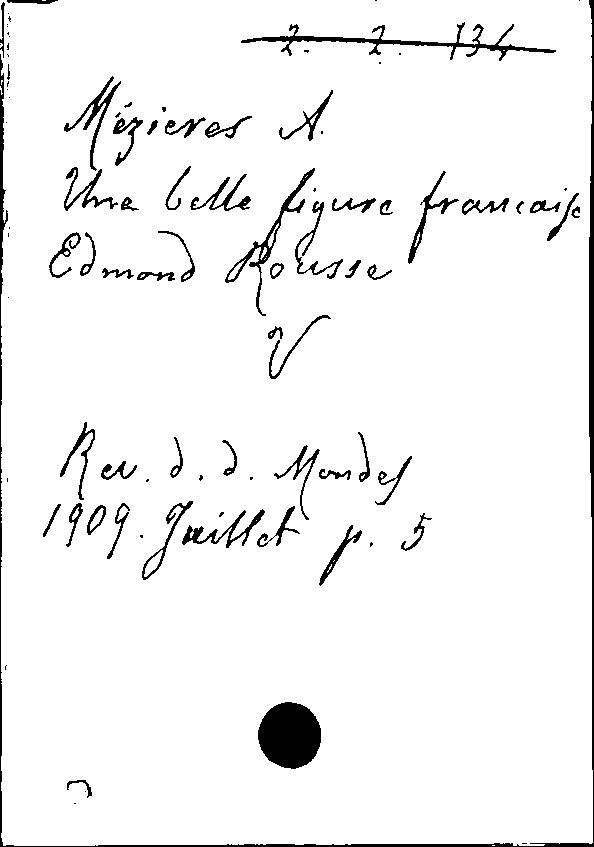 2. 2. 134
Mézieres A.
Une belle figure francaise
Edmond Rousse
V
Rev. d. d. Mondes
1909. Juillet p. 5